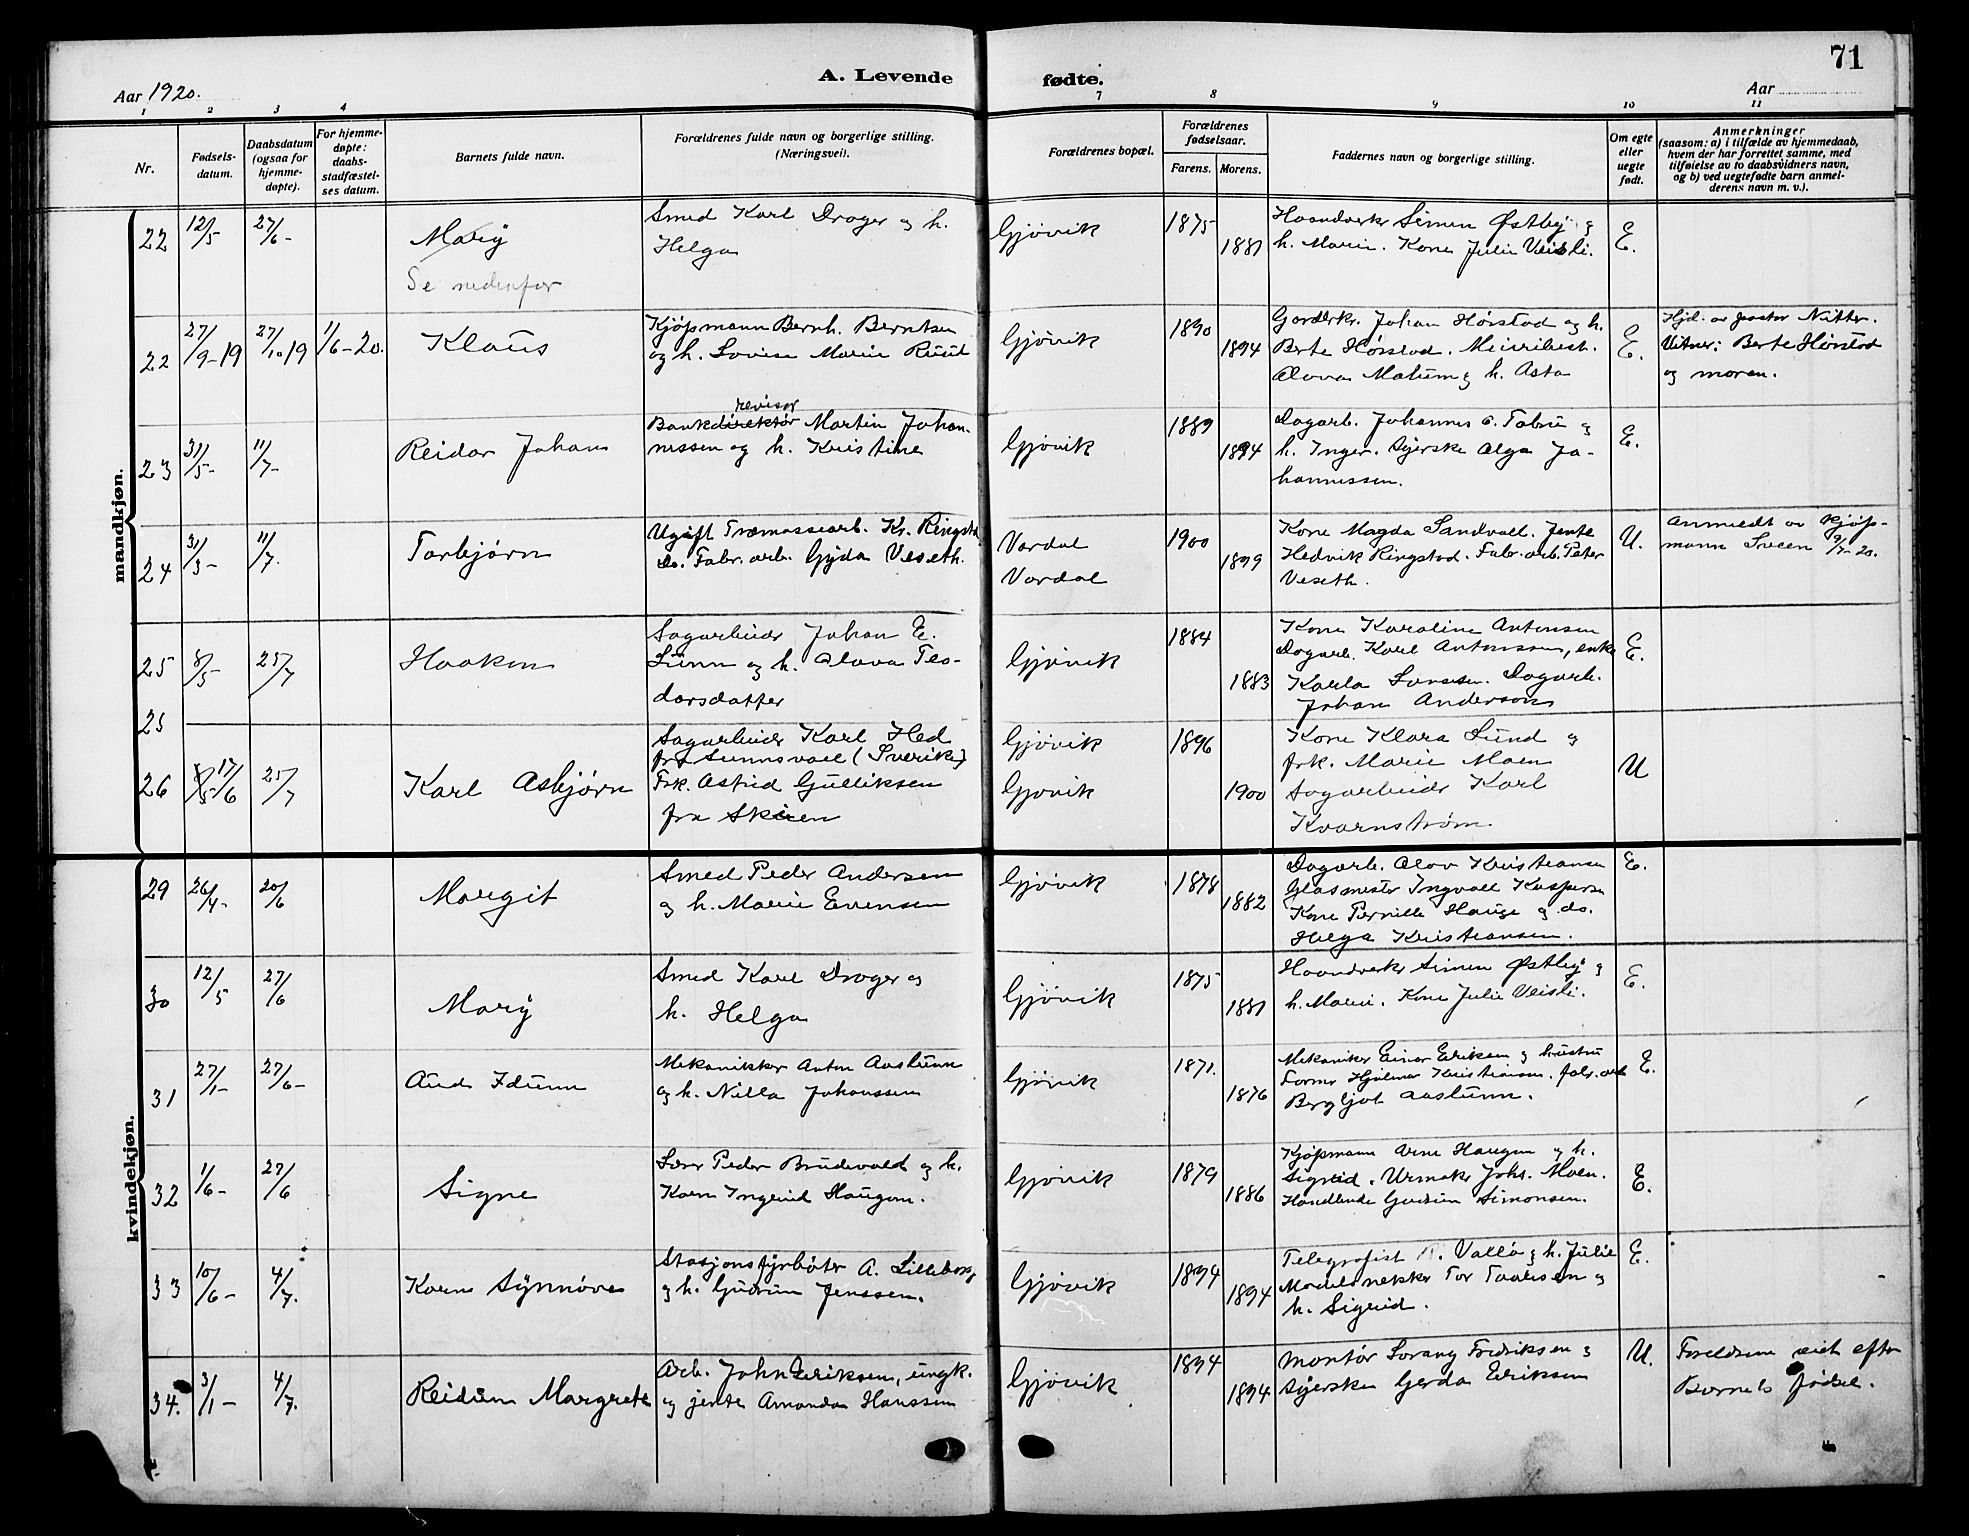 71
A. Levende fødte.
Aar 1920.
Aar
1 2 3 4 7 8 9 10 11
Nr.
Fødsels-
datum.
Daabsdatum
(ogsaa for
hjemme-
døpte).
For hjemme-
døpte:
daabs-
stadfæstel-
ses datum.
Barnets fulde navn.
Forældrenes fulde navn og borgerlige stilling.
(Næringsvei).
Forældrenes bopæl.
Forældrenes
fødselsaar.
Farens. Morens.
Faddernes navn og borgerlige stilling.
Om egte
eller
uegte
født.
Anmerkninger
(saasom: a) i tilfælde av hjemmedaab,
hvem der har forrettet samme, med
tilføielse av to daabsvidners navn,
og b) ved uegtefødte barn anmel-
derens navn m. v.).
mandkjøn.
22 12/5 27/6- Mary
Se nedenfor
Smed Karl Droger og h.
Helga
Gjøvik 1875 1881
Haandverker Simen Østby og
h. Marie. Kone Julie Veisli.
E.
22 27/9-19 27/10 19 1/6-20. Klaus
Kjøpmann Bernh. Berntsen
og h. Lovise Marie Ruud
Gjøvik 1890 1894
Gardbr. Johan Hørstad og h.
Berte Hørstad. Meieribest.
Olava Mælum og h. Asta
E.
E.
Hjd. av jordmor Nitter.
Vitner: Berte Hørstad
og moren.
23 31/5- 11/7- Reidar Johan
revisor
Bankdirektør Martin Johan-
nessen og h. Kristine
Gjøvik 1889 1894
Dagarb. Johannes O. Tabru og
h. Inger. Syerske Olga Jo-
hannessen.
E.
24 31/3- 11/7. Torbjørn
Ugift Træmassearb. Kr. Ringstad
Do. Fabr. arb. Gyda Veseth.
Vardal
Vardal
1900 1899
Kone Magda Sandvoll. Jente
Hedvik Ringstad. Fabr. arb. Peter
Veseth.
U.
Anmeldt av kjøp-
mann Sveen 9/7-20.
25 8/5- 25/7 Haakon
Sagarbeider Johan E.
Lunn og h. Olava Teo-
dorsdatter
Gjøvik 1884 1883
Kone Karoline Antonsen
Dagarb. Karl Antonssen, enke
Karla Larssen. Dagarb.
Johan Anderson
E.
25
26 17/6 25/7 Karl Asbjørn
Sagarbeider Karl Hed
fra Sunnsvall (Sverike)
Frk. Astrid Gulliksen
fra Skien
Gjøvik
Gjøvik
1896 1900
Kone Klara Lund og
frk. Marie Moen
Sagarbeider Karl
Kvarnstrøm
U
kvindekjøn.
29 26/4- 20/6 Margit
Smed Peder Andersen
og h. Marie Evensen
Gjøvik 1878 1882
Dagarb. Olav Kristiansen
Glasmester Ingvall Kaspersen
Kone Pernille Hauge og do.
Helga Kristiansen.
E.
30 12/5 27/6 Mary
Smed Karl Droger og
h. Helga
Gjøvik 1875 1881
Haandverker Simen Østby og
h. Marie. Kone Julie Veisli.
E.
31 27/1- 27/6- Aud Idunn
Mekanikker Anton Aaslunn
og h. Nilla Johanssen
Gjøvik 1871. 1876
Mekaniker Einar Eriksen og hustru
Former Hjalmar Kristiansen. Fabr. arb.
Bergljot Aaslunn.
E.
32 1/6- 27/6 Signe
Lærer Peder Brudevold og h.
Karen Ingerid Haugom.
Gjøvik 1879 1886
Kjøpmann Arne Haugom og h.
Sigrid. Urmaker Johs. Moen.
Handlende Gudrun Simonsen.
E.
33 10/6- 4/7. Karen Synnøve
Stasjonsfyrbøter A. Lilleborg
og h. Gudrun Jenssen.
Gjøvik 1894 1894
Telegrafist R. Vallø og h. Julie
Modelsnekker Tor Taalesen og
h. Sigrid.
E.
34. 3/1- 4/7. Reidun Margrete
Arb. John Eriksen, ungk.
og jente Amanda Hanssen
Gjøvik 1894 1894
Montør Lorang Fredriksen og
syerske Gerda Eriksen
U.
Foreldrene viet efter
Barnets fødsel.